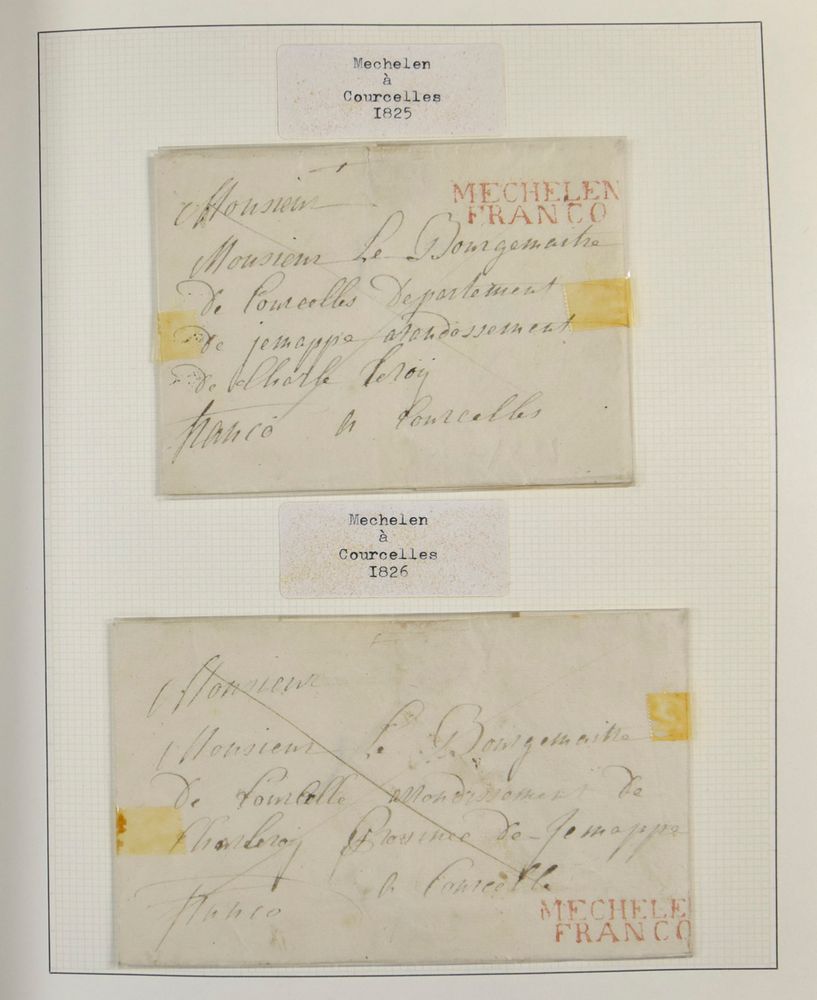 Mechelen
à
Courcelles
1825
MECHELEN
FRANCO
Monsieur
Monsieur Le Bourgemaitre
de Courcelles Departement
de jemappe arondossement
de Charle leroy
franco a Courcelles
Mechelen
à
Courcelles
1826
Monsieur
Monsieur Le Bourgemaitre
de Courcelle arrondissement de
Charleroy Province de Jemappe
a Courcelle
franco
MECHELE
FRANCO